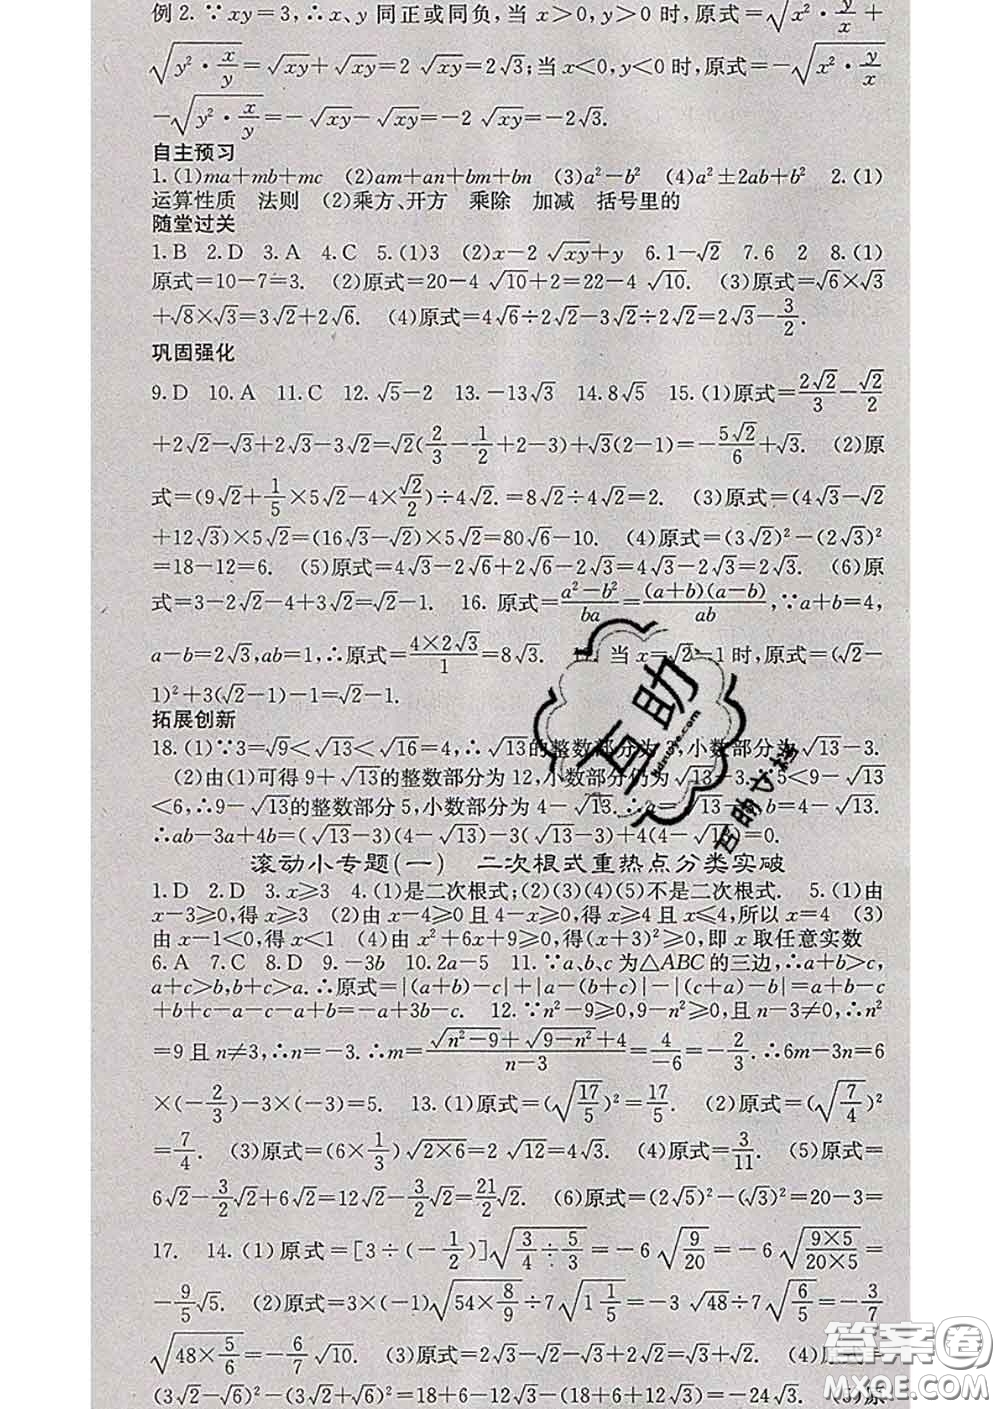 例2. ∵xy=3,∴x、y 同正或同负,当 x>0,y>0 时,原式=√(x²·y/x)+
√(y²·x/y)=√xy+√xy=2√xy=2√3;当x<0,y<0时,原式=-√(x²·y/x)
-√(y²·x/y)=-√xy-√xy=-2√xy=-2√3.
自主预习
1.(1)ma+mb+mc (2)am+an+bm+bn (3)a²-b² (4)a²±2ab+b² 2.(1)
运算性质 法则 (2)乘方、开方 乘除 加减 括号里的
随堂过关
1.B 2.D 3.A 4.C 5.(1)3 (2)x-2√xy+y 6.1-√2 7.6 2 8.(1)
原式=10-7=3. (2)原式=20-4√10+2=22-4√10. (3)原式=√6×√3
+√8×√3=3√2+2√6. (4)原式=4√6÷2√2-3√2÷2√2=2√3-3/2.
巩固强化
9.D 10.A 11.C 12.√5-2 13.-13√3 14.8√5 15.(1)原式=2√2/3-√2/2
+2√2-√3+2√3-3√2=√2(2/3-1/2+2-3)+√3(2-1)=-5√2/6+√3. (2)原
式=(9√2+1/5×5√2-4×√2/2)÷4√2.=8√2÷4√2=2. (3)原式=(4√3-√2
+12√3)×5√2=(16√3-√2)×5√2=80√6-10. (4)原式=(3√2)²-(2√3)²
=18-12=6. (5)原式=4√3-2√6+2√6-2√3=4√3-2√3=2√3. (6)原
式=3-2√2-4+3√2=√2-1. 16. 原式=(a²-b²)/ba=(a+b)(a-b)/ab,∵a+b=4,
a-b=2√3,ab=1,∴原式=4×2√3/1=8√3. 当 x=√2-1时,原式=(√2-
1)²+3(√2-1)-1=√2-1.
拓展创新
18.(1)∵3=√9<√13<√16=4,∴√13的整数部分为3,小数部分为√13-3.
(2)由(1)可得9+√13的整数部分为12,小数部分仍为√13-3. ∵5<9-√13
<6,∴9-√13的整数部分5,小数部分为4-√13.∴a=√13-3,b=4-√13.
∴ab-3a+4b=(√13-3)(4-√13)-3(√13-3)+4(4-√13)=0.
滚动小专题(一) 二次根式重热点分类实破
1.D 2.D 3.x≥3 4.(1)是二次根式;(2)(3)(4)(5)不是二次根式. 5.(1)由
x-3≥0,得 x≥3 (2)由 x-4≥0 且 4-x≥0,得 x≥4 且 x≤4,所以 x=4 (3)
由 x-1<0,得 x<1 (4)由 x²+6x+9≥0,得(x+3)²≥0,即 x 取任意实数
6.A 7.C 8.D 9.-3b 10.2a-5 11.∵a、b、c 为△ABC 的三边,∴a+b>c,
a+c>b,b+c>a.∴原式=|(a+b)-c|+|a-(b+c)|-|(c+a)-b|=a+b-c
+b+c-a-c-a+b=-a+3b-c. 12.∵n²-9≥0,9-n²≥0,且 n-3≠0,∴n²
=9 且 n≠3,∴n=-3.∴m=(√(n²-9)+√(9-n²)+4)/(n-3)=4/-6=-2/3.∴6m-3n=6
×(-2/3)-3×(-3)=5. 13.(1)原式=(√(17/5))²=17/5. (2)原式=(√(7/4))²
=7/4. (3)原式=(6×1/3)√(2×6)=2√12=4√3. (4)原式=3/11. (5)原式=
6√2-3/2√2+6√2=12√2-3/2√2=21/2√2. (6)原式=(2√5)²-(√3)²=20-3=
17. 14.(1)原式=[3÷(-1/2)]√(3/4÷5/3)=-6√(9/20)=-6√(9×5/20×5)=
-9/5√5. (2)原式=3×(-1)√(54×8/9)÷7√(1 1/5)=-3√48÷7√(6/5)=-3/7
√(48×5/6)=-6/7√10. (3)原式=2√3-√3+√2=√3+√2. (4)原式=
(3√2-√6)²-(3√2+√6)²=18+6-12√3-(18+6+12√3)=-24√3. (5)原
互助
互助文档
答案圈
MXQE.COM